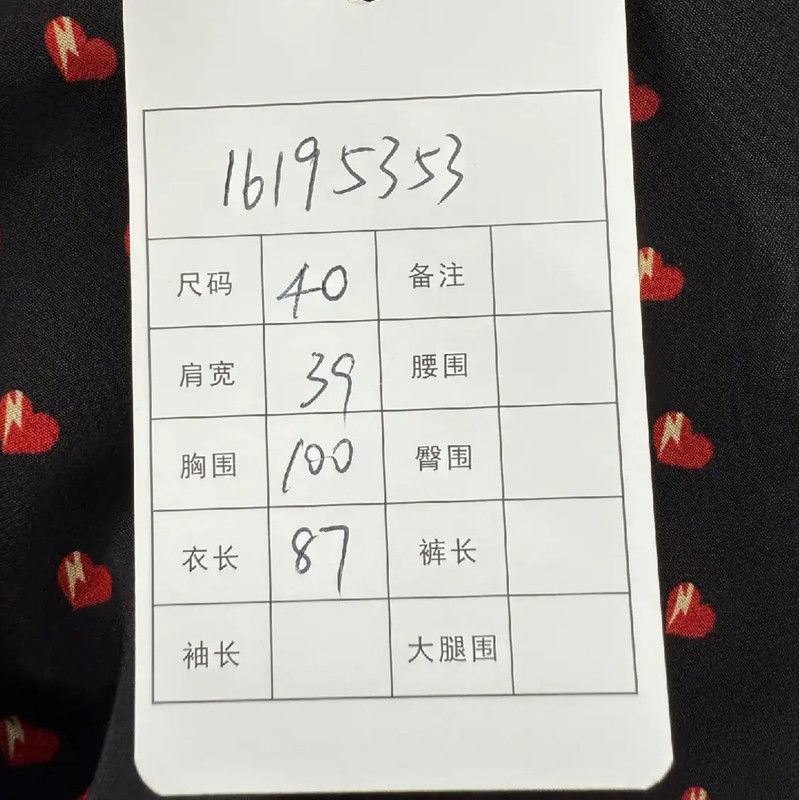 16195353
尺码 40 备注
肩宽 39 腰围
胸围 100 臀围
衣长 87 裤长
袖长 大腿围